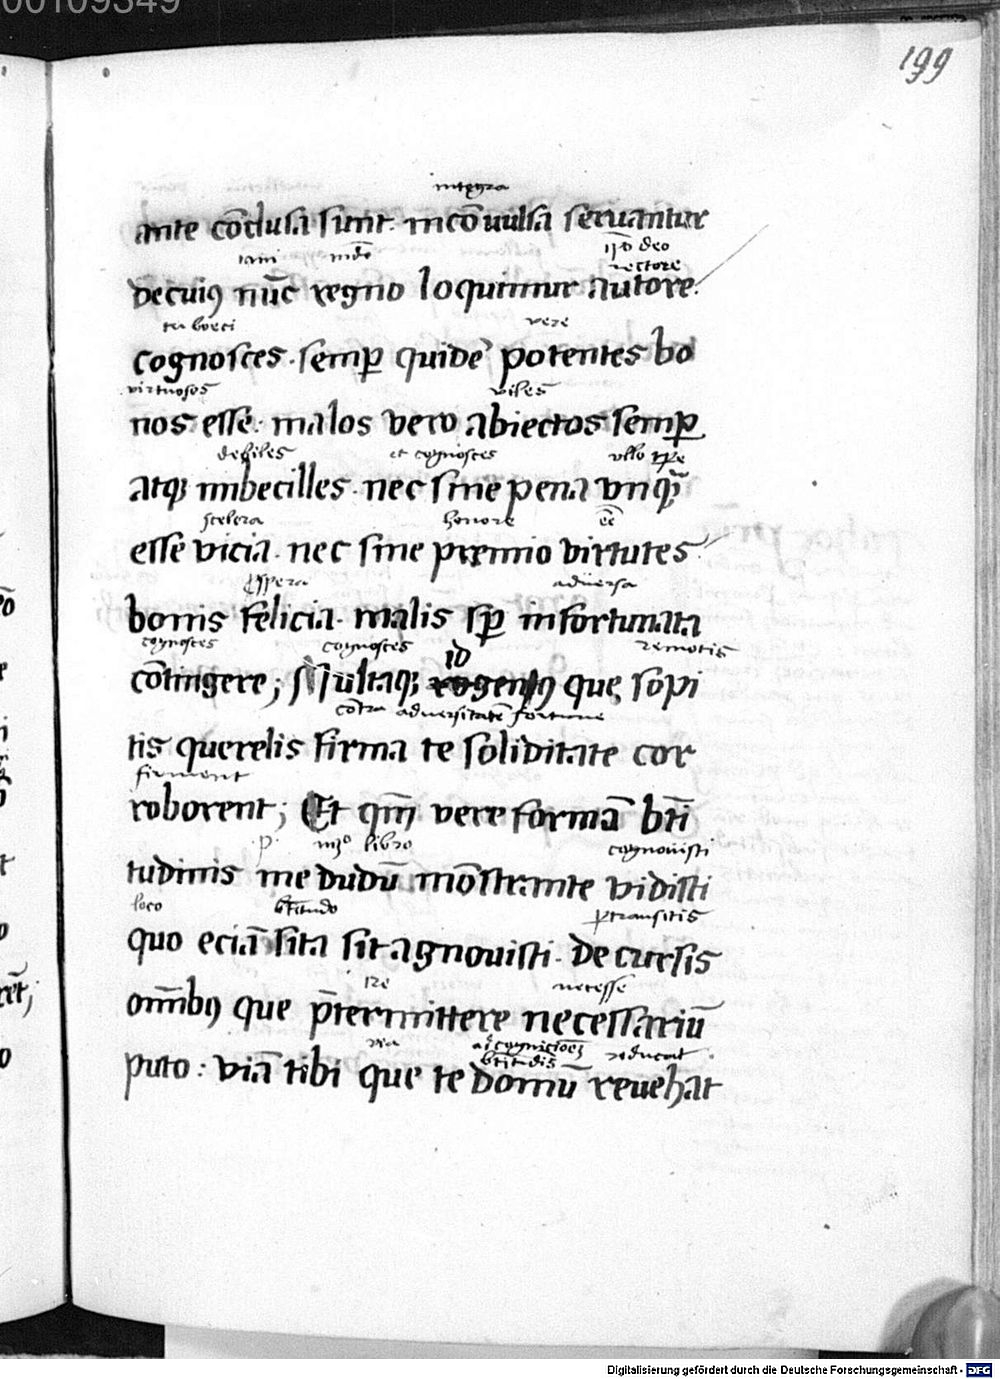 00109349
199
integra
ante cōclusa sunt. incōuulsa seruantur
iam mō ip̄o deo
rectore
de cuiꝰ nūc regno loquimur autore.
tu boeci vere
cognosces. semꝑ quidē potentes bo
virtuosos viles
nos esse. malos vero abiectos semꝑ
debiles et cognosces vllo tp̄e
atqꝫ imbecilles. nec sine pena vnqꝫ̄
scelera honore eē
esse vicia. nec sine premio virtutes
ꝓspera aduersa
bonis felicia. malis sꝑ infortunata
cognosces cognosces remotis
id
cōtingere; Multaqꝫ genꝰ que sopi
cōtra aduersitatē fortune
tis querelis firma te soliditate cor
firment
roborent; Et qm̄ vere formā bt̄i
p̄ libro cognouisti
tudinis me dudū mōstrante vidisti
loco bt̄itudo ꝑtransitis
quo eciā sita sit agnouisti. Decursis
re necesse
om̄ibꝰ que p̄termittere necessariū
via ad cognicōeꝫ reducat
bt̄itudīs
puto: viā tibi que te domū reuehat
Digitalisierung gefördert durch die Deutsche Forschungsgemeinschaft - DFG